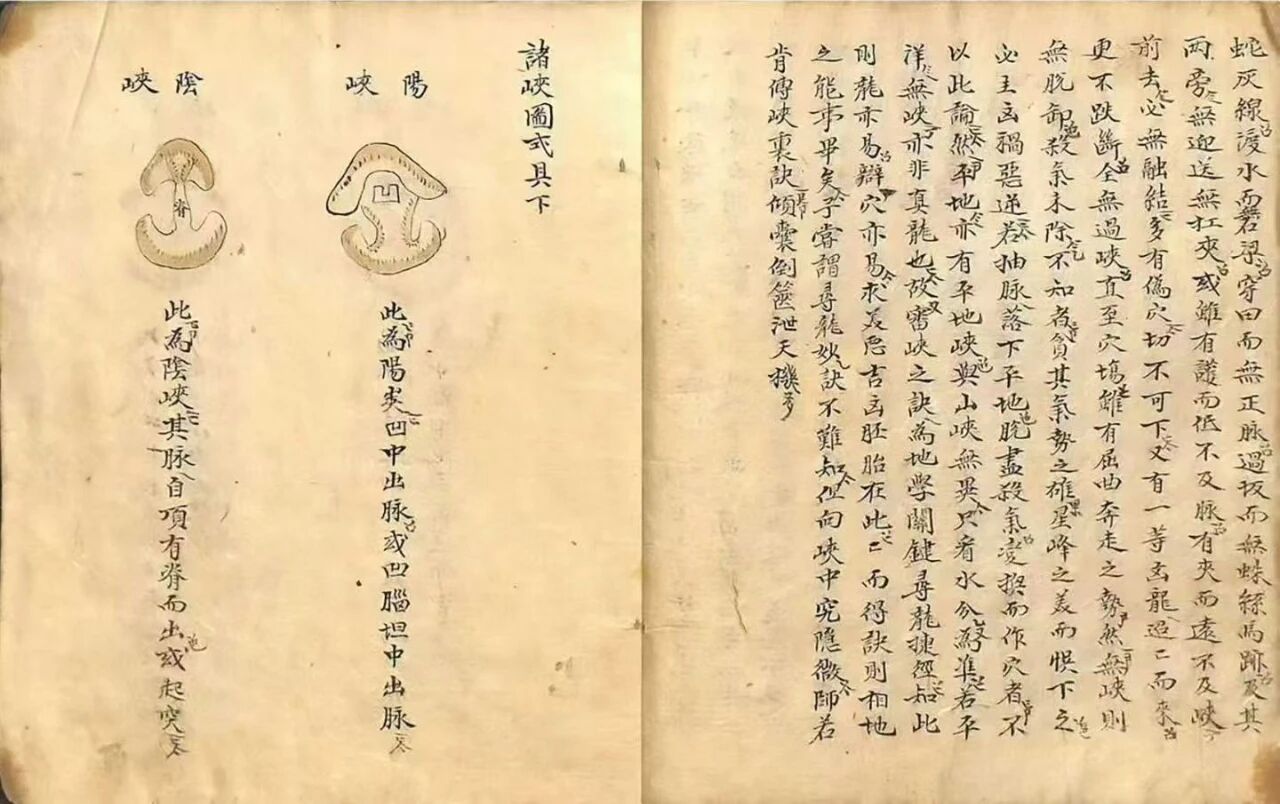 蛇灰線渡水而無石梁穿田而無正脉過坂而無蛛絲馬跡及其
兩旁無迎送無扛夾或雖有護而低不及脉有夾而遠不及峽
前去必無融結多有偽穴切不可下又有一等凶龍迢〻而來
更不跌斷全無過峽直至穴塲雖有屈曲奔走之勢然無峽則
無脫卸殺氣未除不知者貪其氣勢之雄星峰之美而悞下之
必主凶禍惡逆若抽脉落下平地脫盡殺氣變換而作穴者不
以此論然平地亦有平地峽與山峽無異只看水分為準若平
洋無峽亦非真龍也故審峽之訣為地學關鍵尋龍捷徑知此
則龍亦易辯穴亦易求美惡吉凶胚胎在此〻而得訣則相地
之能事畢矣予嘗謂尋龍妙訣不難知但向峽中究隱微師若
肯傳峽裏訣傾囊倒篋泄天機
諸峽圖式具下
陽峽
凹
此為陽矣凹中出脉或凹腦坦中出脉
陰峽
脊
此為陰峽其脉自項有脊而出或起突